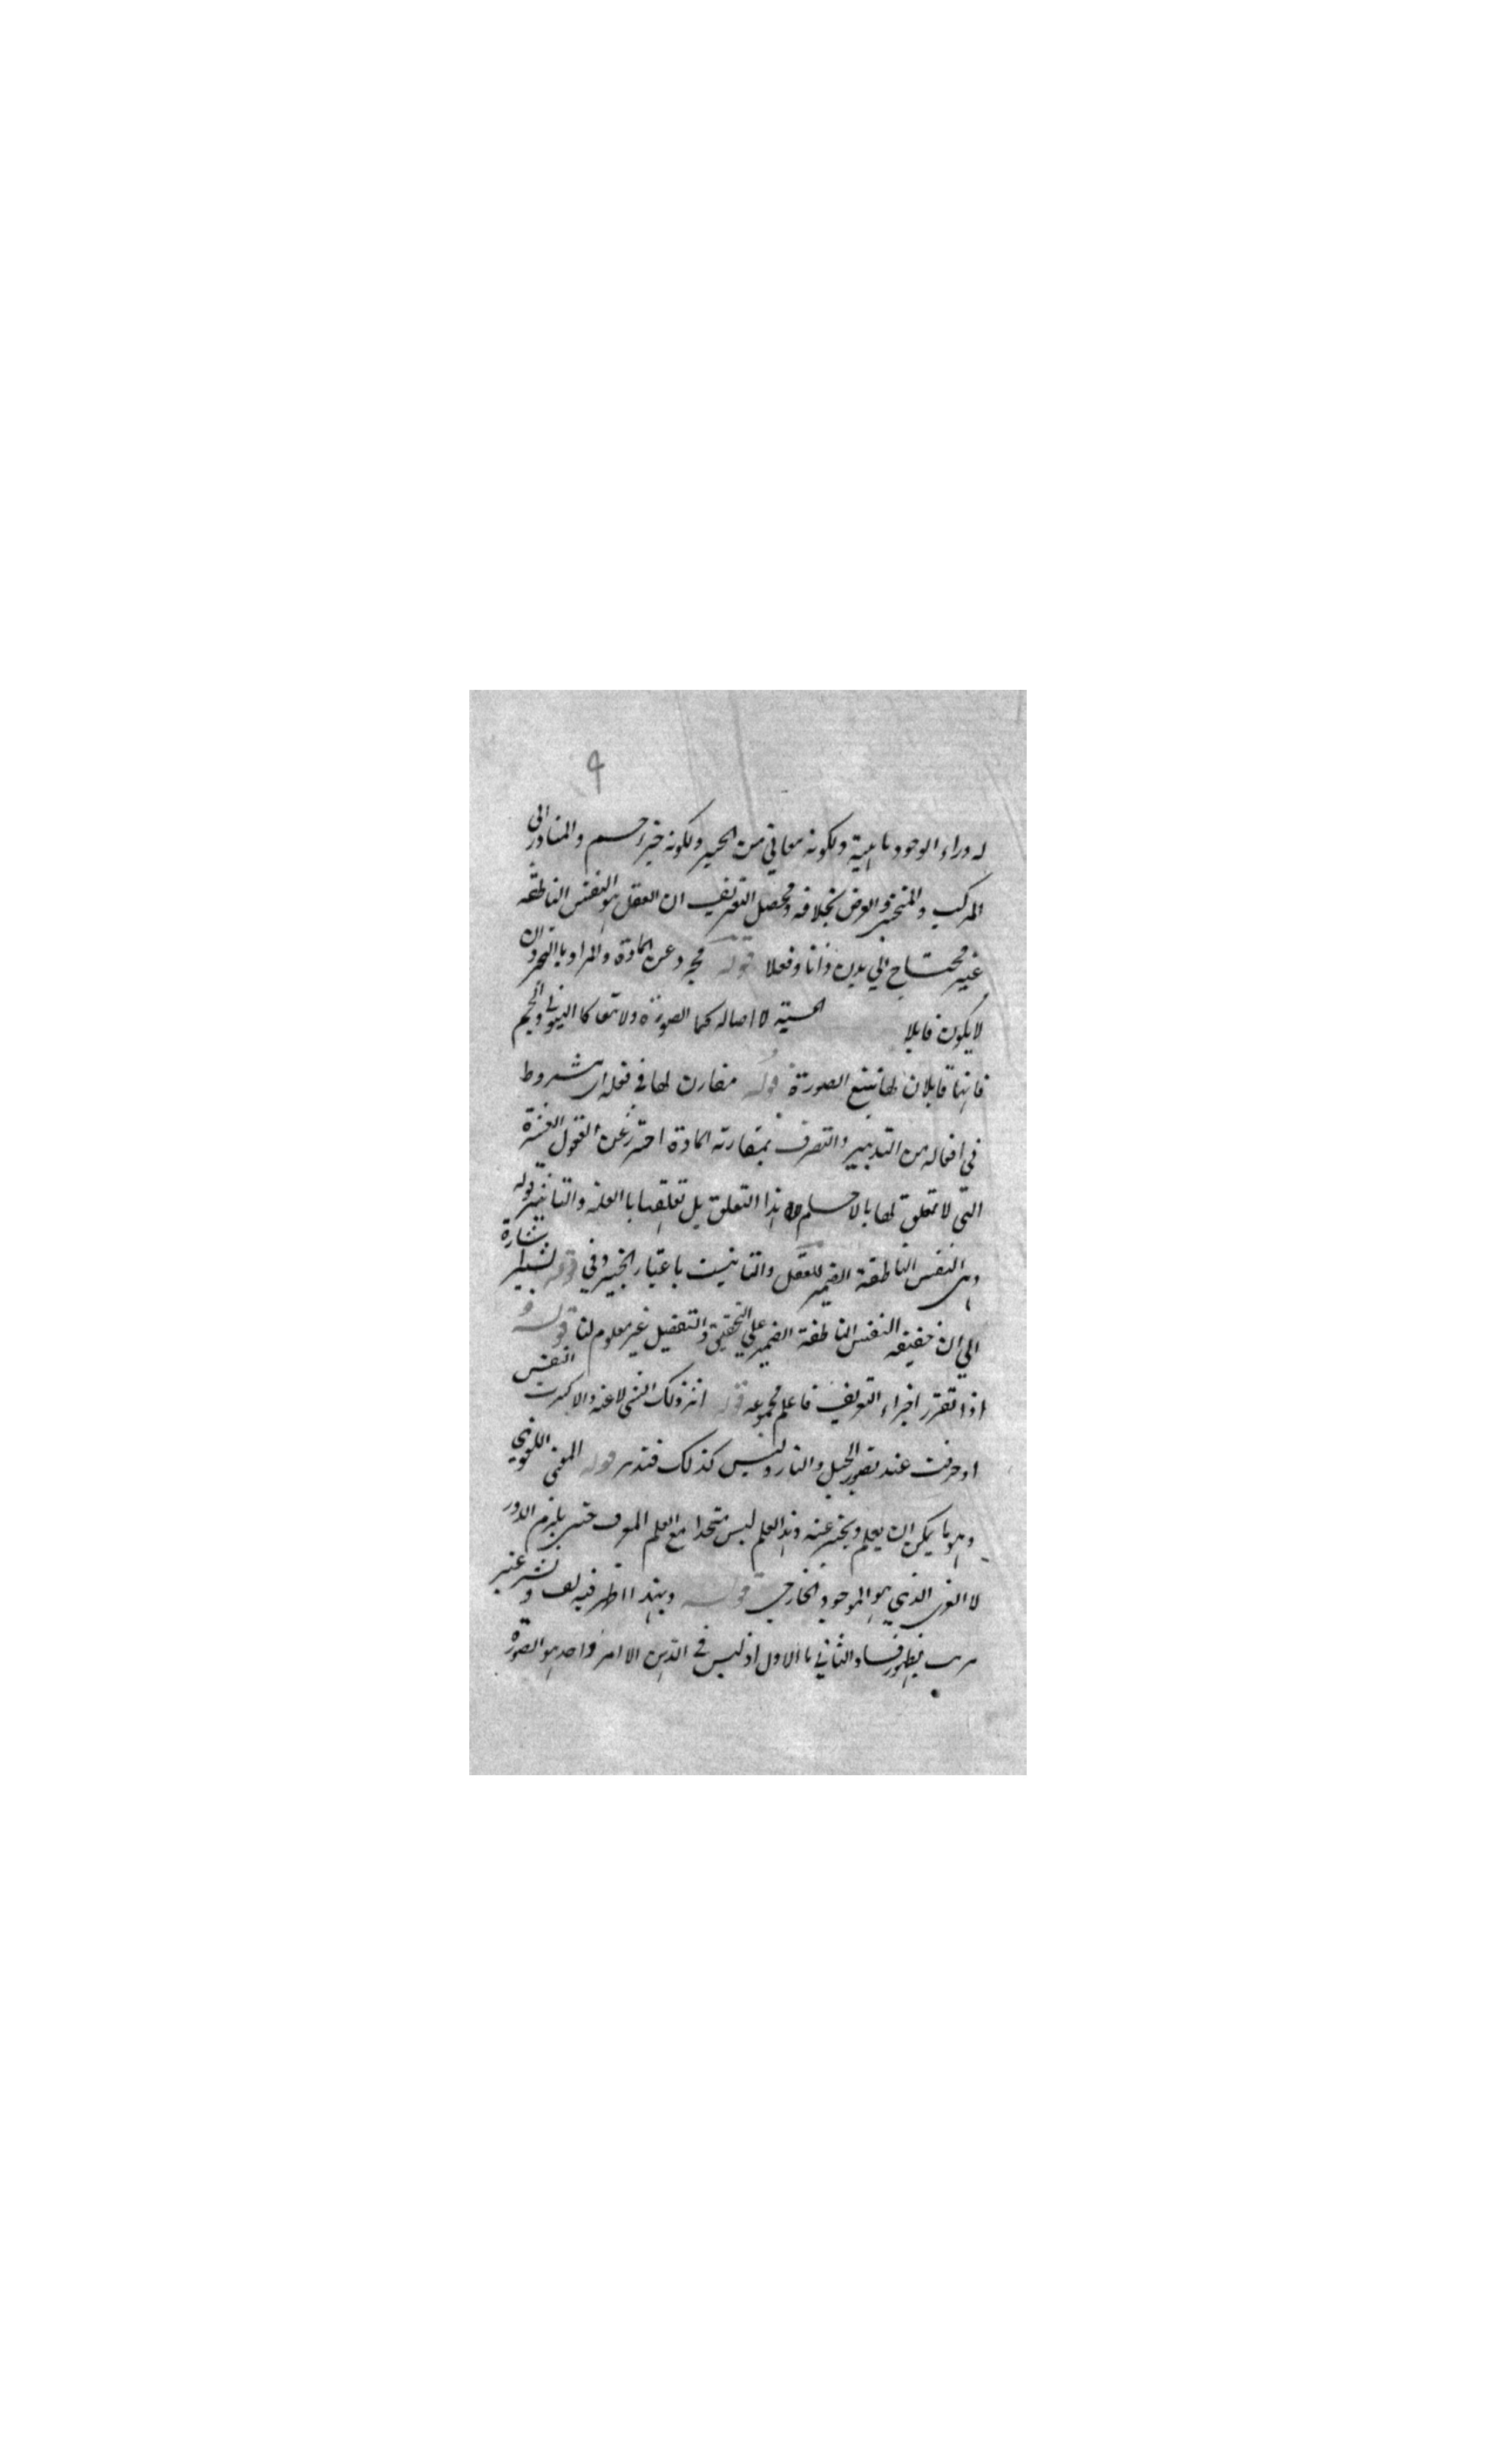 ٩
له وراء الوجود ماهية ولكونه معاني من الحيز ولكونه جزء جسم والمتبادر الى
المركب والمتحيز والعرض بخلافه ومحصل التعريف ان العقل هو النفس الناطقة
غير محتاج الي بدن ذاتا وفعلا قوله مجرد عن المادة والمراد بالتجرد ان
لا يكون قابلا الحسية لا اصالة كما الصورة ولا تبعا كالهيولى والجسم
فانهما قابلان لها بتبع الصورة قوله مقارن لها في فعله اي مشروط
في افعاله من التدبير والتصرف بمقارنة المادة احترز عن العقول العشرة
التي لا تعلق لها بالاجسام هذا التعلق بل تعلقها بالعلية والتاثير قوله
وهى النفس الناطقة الضمير للعقل والتانيث باعتبار الخبر وفي قوله يشير اشارة
الي ان حقيقة النفس الناطقة الضمير علي التحقيق والتفصيل غير معلوم لنا قوله و
اذا تقرر اجزاء التعريف فاعلم مجموعه قوله اثر ذلك الشى لا عنه والا النفس
او حرقت عند تصور الجبل والنار وليس كذلك فتدبر قوله المعنى اللغوي
وهو ما يمكن ان يعلم ويخبر عنه وهذا العلم ليس متحدا مع العلم المعرف حتى يلزم الدور
لا الذي هو الموجود الخارجي قوله وبهذا اظهر فيه لف ونشر غير
مرتب فظهور فساد الثاني بالاول اذ ليس في الذهن الا امر واحد هو الصورة